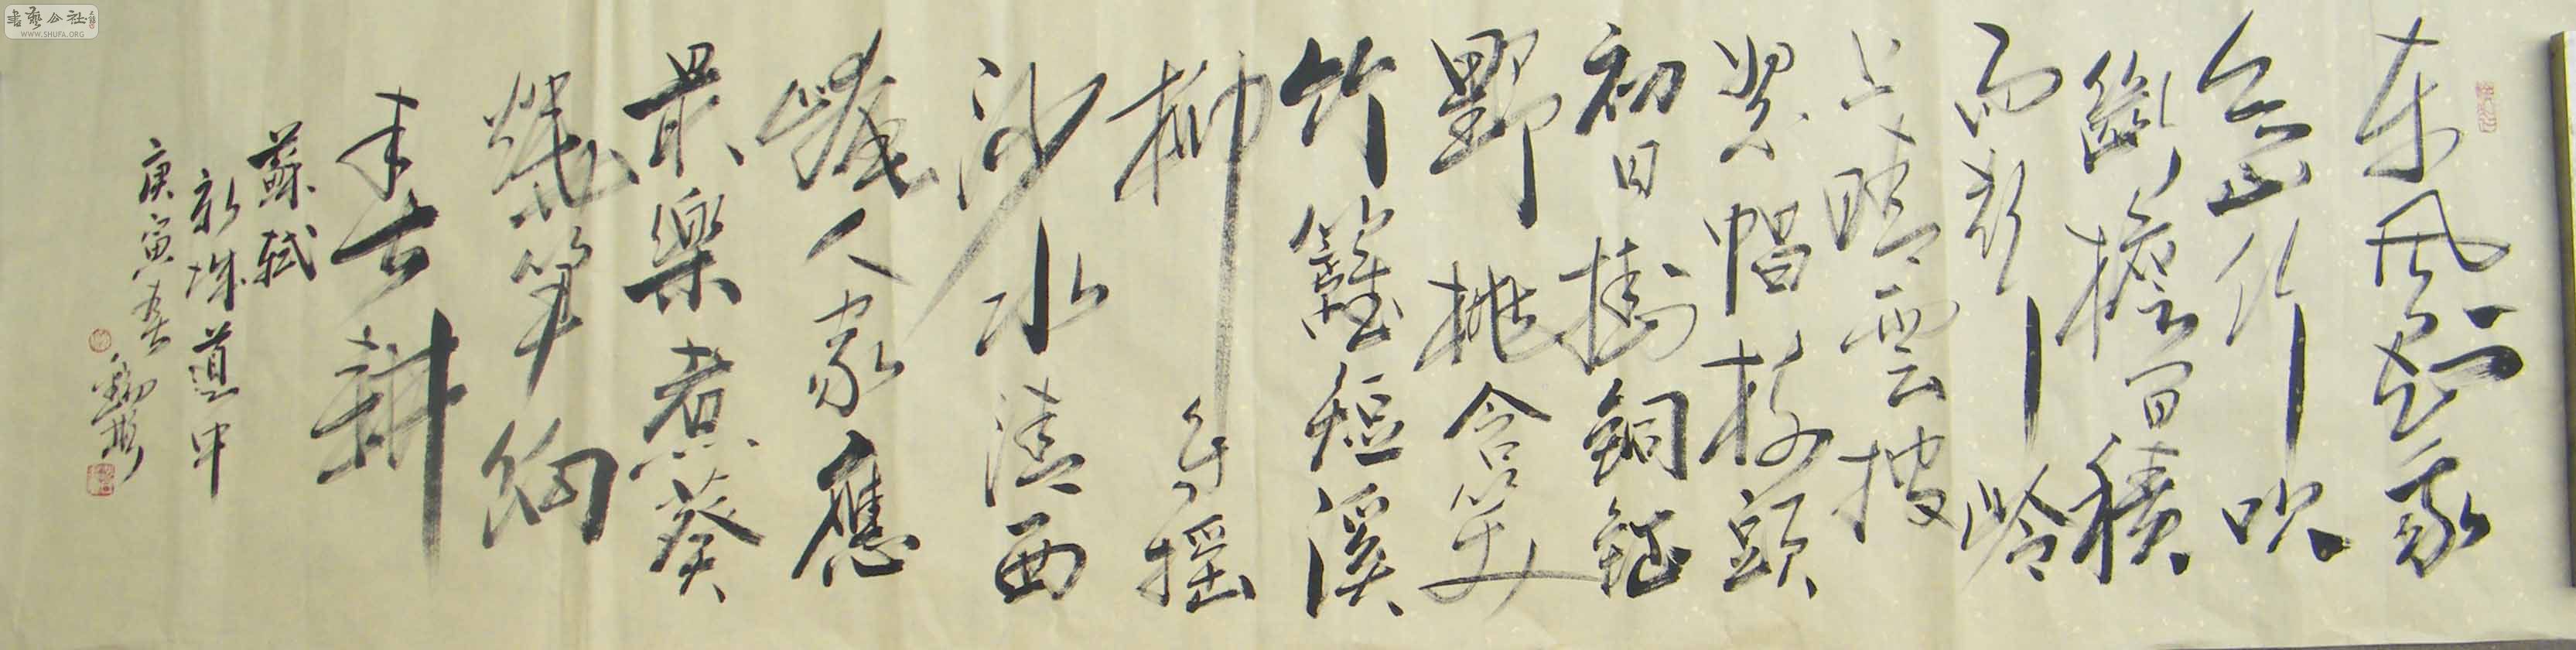 書藝公社
WWW.SHUFA.ORG
东风知我
欲山行吹
斷檐間積
雨聲嶺
上晴雲披
絮帽樹頭
初日掛銅鉦
野桃含笑
竹籬短溪
柳自搖
沙水清西
崦人家應
最樂煮葵
燒筍餉
春耕
蘇軾
新城道中
庚寅春